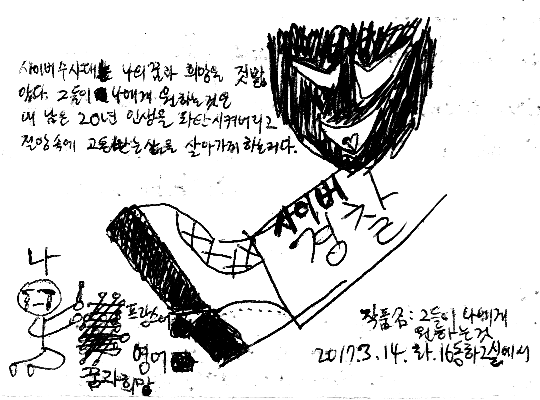 사이버수사대는 나의 꿈과 희망을 짓밟
았다. 그들이 나에게 원하는 것은
내 남은 20년 인생을 파탄시켜버리고
절망속에 고통받는 삶을 살아가게 하는거다.
사이버
경찰
나
프랑스어
영어
꿈과 희망
작품명: 그들이 나에게
원하는 것
2017.3.14. 화. 16동하2실에서